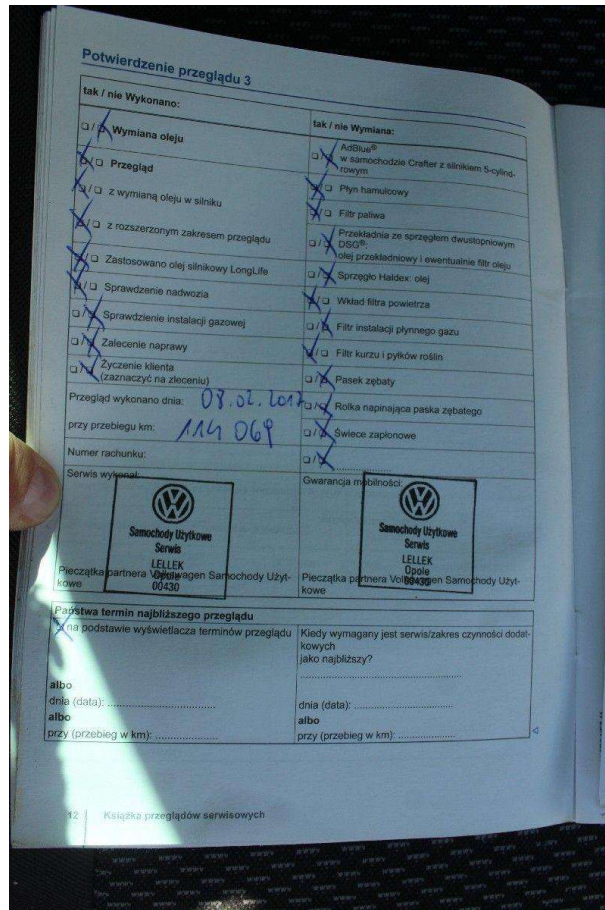 Potwierdzenie przeglądu 3
tak / nie Wykonano:
□/□ Wymiana oleju
□/□ Przegląd
□/□ z wymianą oleju w silniku
□/□ z rozszerzonym zakresem przeglądu
□/□ Zastosowano olej silnikowy LongLife
□/□ Sprawdzenie nadwozia
□/□ Sprawdzienie instalacji gazowej
□/□ Zalecenie naprawy
□/□ Życzenie klienta
(zaznaczyć na zleceniu)
Przegląd wykonano dnia: 08.02.2017
przy przebiegu km: 114 069
Numer rachunku:
Serwis wykonał:
Samochody Użytkowe
Serwis
LELLEK
Opole
00430
Pieczątka partnera Volkswagen Samochody Użyt-
kowe
tak / nie Wymiana:
□/□ AdBlue®
w samochodzie Crafter z silnikiem 5-cylind-
rowym
□/□ Płyn hamulcowy
□/□ Filtr paliwa
□/□ Przekładnia ze sprzęgłem dwustopniowym
DSG®:
olej przekładniowy i ewentualnie filtr oleju
□/□ Sprzęgło Haldex: olej
□/□ Wkład filtra powietrza
□/□ Filtr instalacji płynnego gazu
□/□ Filtr kurzu i pyłków roślin
□/□ Pasek zębaty
□/□ Rolka napinająca paska zębatego
□/□ Świece zapłonowe
□/□ ....................
Gwarancja mobilności:
Samochody Użytkowe
Serwis
LELLEK
Opole
00430
Pieczątka partnera Volkswagen Samochody Użyt-
kowe
Państwa termin najbliższego przeglądu
□ na podstawie wyświetlacza terminów przeglądu
albo
dnia (data): ..........................
albo
przy (przebieg w km): ..................
Kiedy wymagany jest serwis/zakres czynności dodat-
kowych
jako najbliższy?
........................................
dnia (data): ..........................
albo
przy (przebieg w km): ..................
12 Książka przeglądów serwisowych